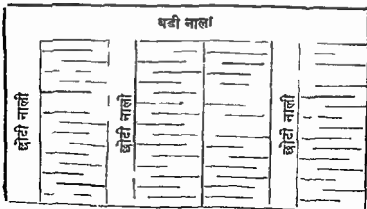 बडी नाला
छोटी नाली
छोटी नाली
छोटी नाली